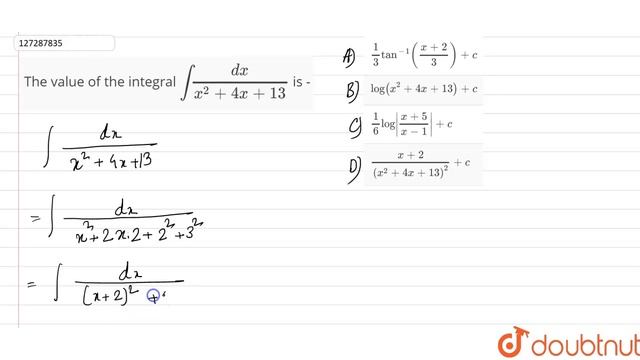 127287835
The value of the integral ∫ dx / (x² + 4x + 13) is -
A) 1/3 tan⁻¹((x + 2)/3) + c
B) log(x² + 4x + 13) + c
C) 1/6 log|(x + 5)/(x − 1)| + c
D) (x + 2)/(x² + 4x + 13)² + c
∫ dx / (x² + 4x + 13)
= ∫ dx / (x² + 2x.2 + 2² + 3²)
= ∫ dx / ((x+2)² +
doubtnut